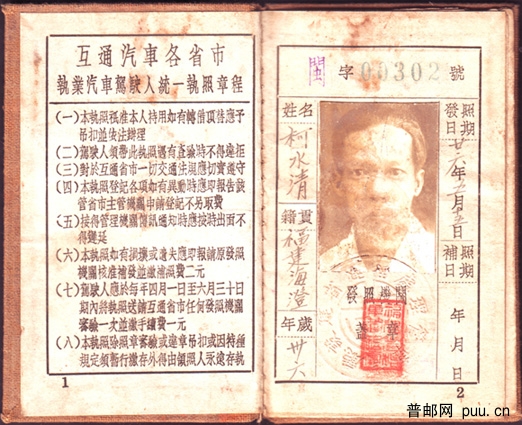 互通汽車各省市
執業汽車駕駛人統一執照章程
(一)本執照祇准本人持用如有轉借頂替應予
吊扣並依法辦理
(二)駕駛人須帶此執照遇有查驗時不得違拒
(三)對於互通省市一切交通法規應切實遵守
(四)本執照登記各項如有異動時應即報告該
管省市主管機關申請登記不另取費
(五)接得管理機關傳訊通知時應按時出面不
得違延
(六)本執照如有損壞或遺失應即報請原發照
機關核准補發並繳補照費二元
(七)駕駛人應於每年四月一日至六月三十日
期內將執照送請互通省市任何發照機關
審驗一次並繳手續費一元
(八)本執照除照章審驗或違章吊扣或因特種
規定須暫行繳存外得由領照人永遠存執
1
閩 字 00302 號
姓名
柯水清
籍貫
福建海澄
年歲
卅六
發照日期
廿六年五月 日
補照日期
年 月 日
2
普邮网 puu.cn